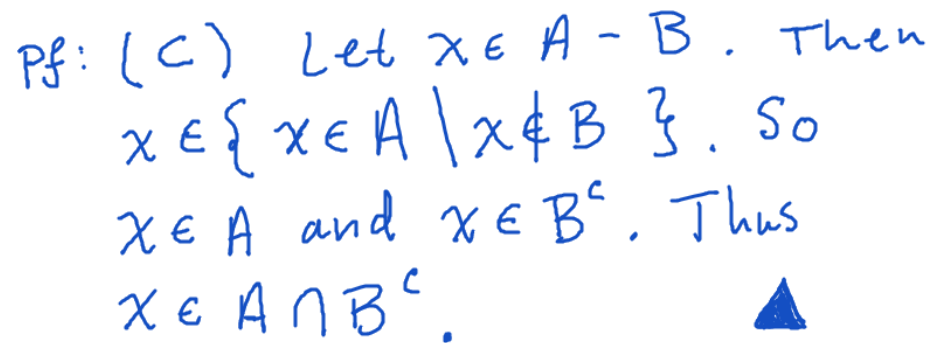 Pf: (⊂) Let x ∈ A - B. Then
x ∈ { x ∈ A | x ∉ B }. So
x ∈ A and x ∈ Bᶜ. Thus
x ∈ A ∩ Bᶜ.